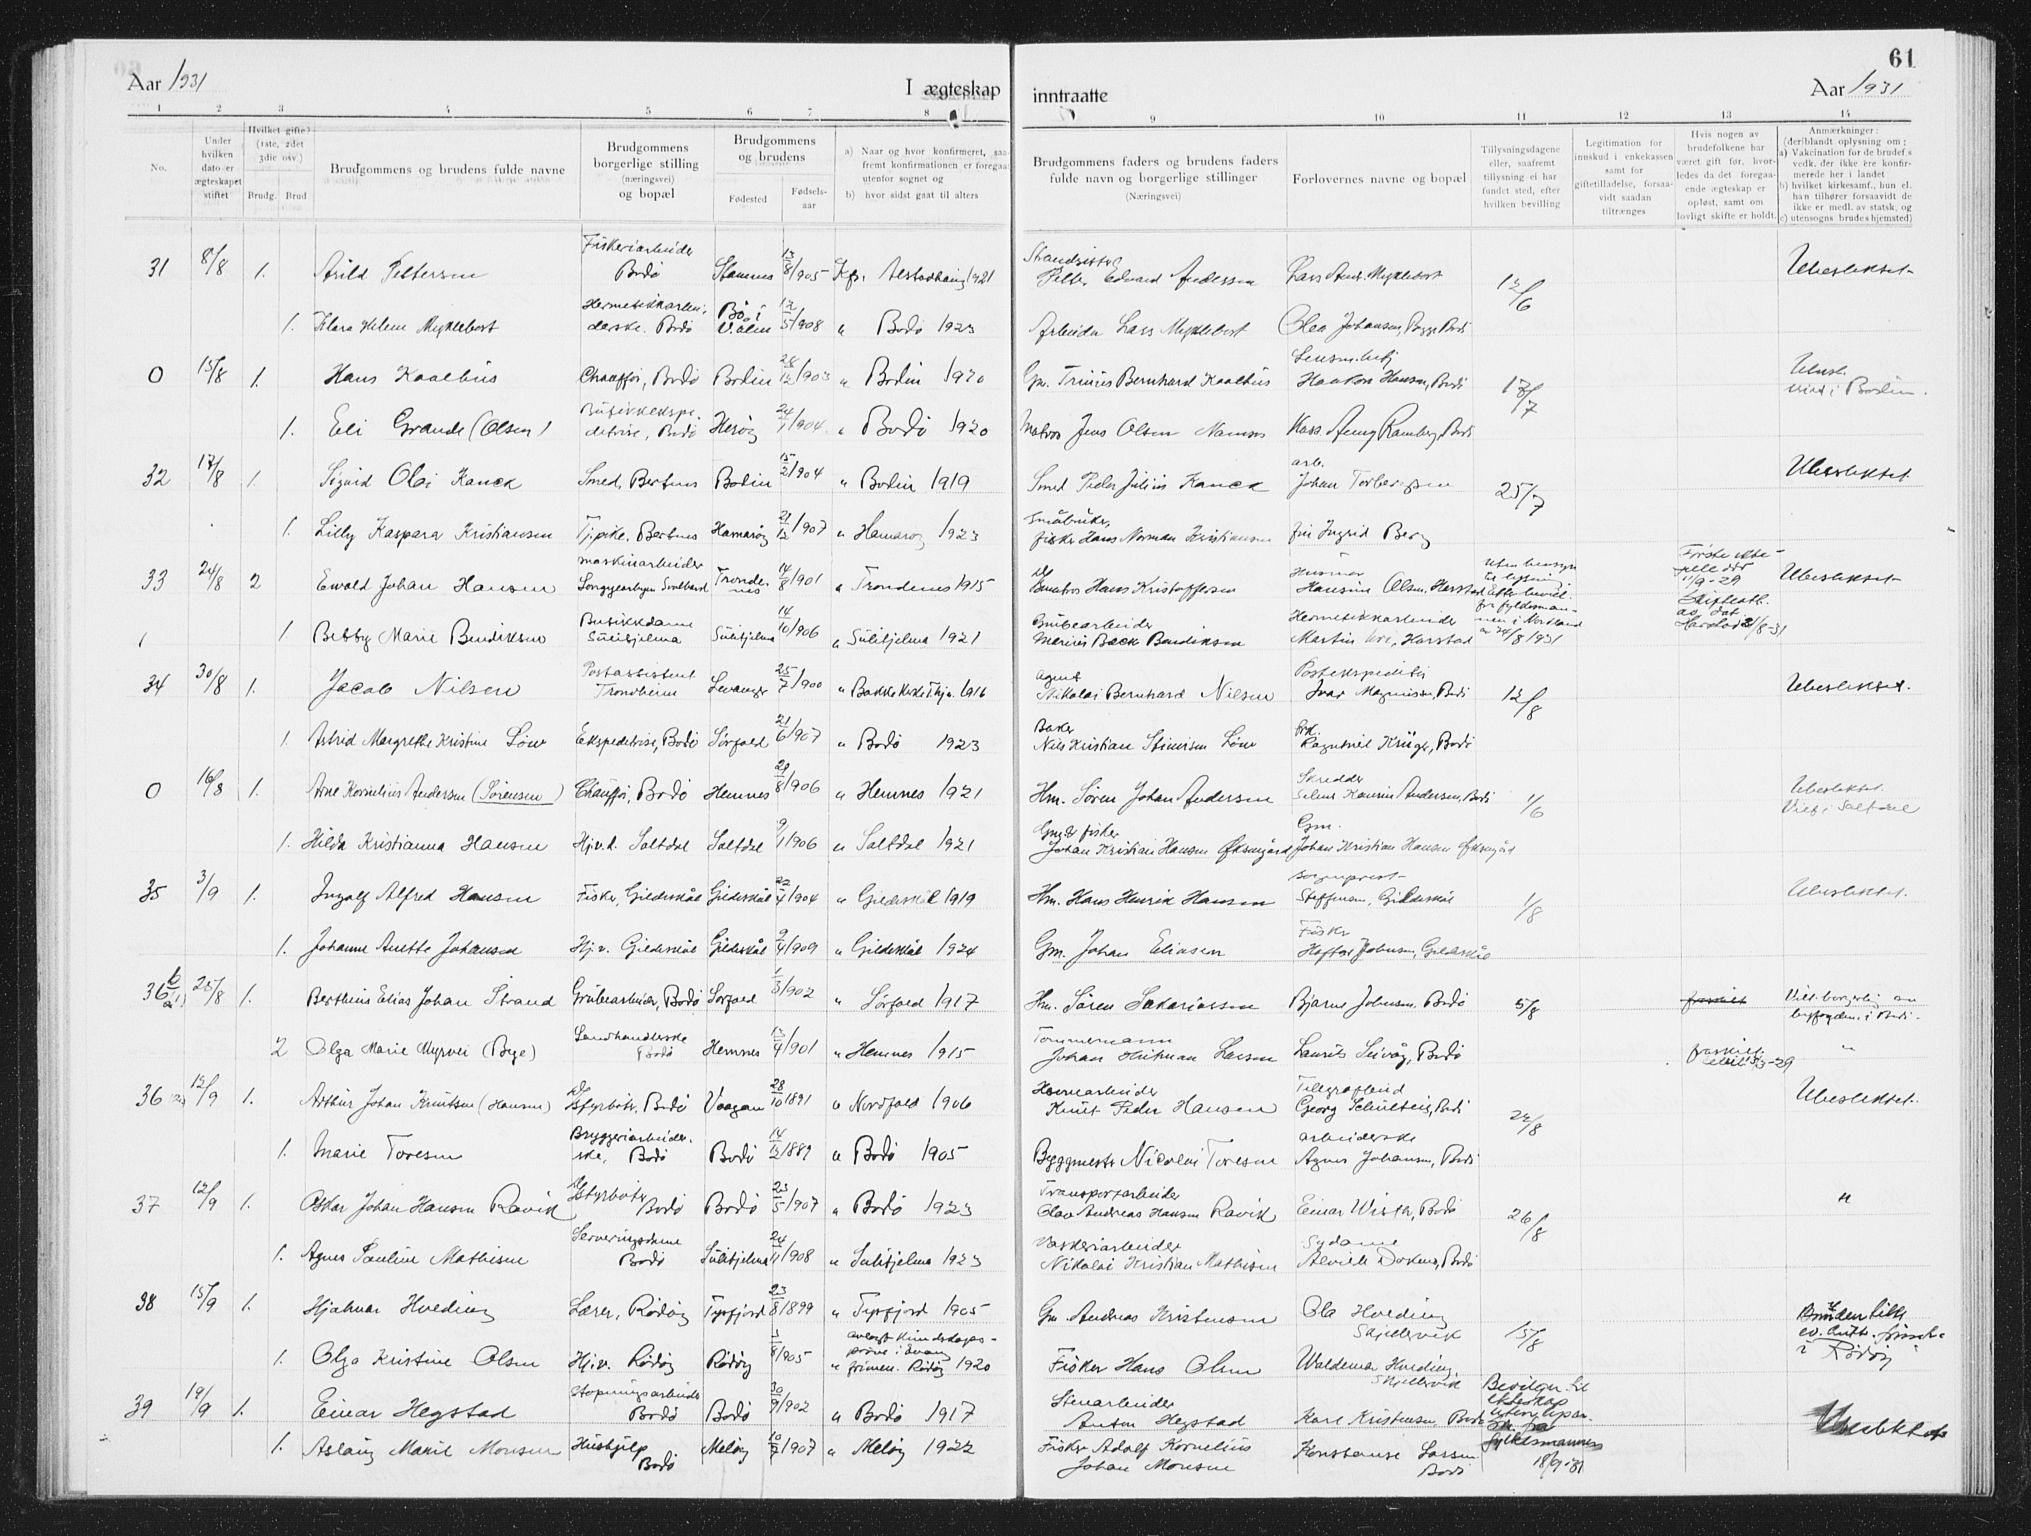 61
Aar 1931 I ægteskap inntraatte Aar 1931
1 2 3 4 5 6 7 8 9 10 11 12 13 14
No.
Under hvilken dato er ægteskapet stiftet
Hvilket gifte? (1ste, 2det 3die osv.) Brudg. Brud
Brudgommens og brudens fulde navne
Brudgommens borgerlige stilling (næringsvei) og bopæl
Brudgommens og brudens Fødested Fødsels-aar
a) Naar og hvor konfirmeret, saafremt konfirmationen er foregaat utenfor sognet og
b) hvor sidst gaat til alters
Brudgommens faders og brudens faders fulde navn og borgerlige stillinger (Næringsvei)
Forlovernes navne og bopæl
Tillysningsdagene eller, saafremt tillysning ei har fundet sted, efter hvilken bevilling
Legitimation for innskud i enkekassen samt for giftetilladelse, forsaavidt saadan tiltrænges
Hvis nogen av brudefolkene har været gift før, hvorledes da det foregaaende ægteskap er opløst, samt om lovligt skifte er holdt.
Anmærkninger: (deriblandt oplysning om;
a) Vakcination for de brudef.s vedk. der ikke ere konfirmerede her i landet
b) hvilket kirkesamf., hun el. han tilhører forsaavidt de ikke er medl. av statsk. og
c) utensogns brudes hjemsted)
31 8/8 1. Arild Pettersen Fiskeriarbeider Bodø Stamnes 13/8 1905 Kfr. Alstadhaug 1921 Petter Edvard Andersen Lars Ands. Myklebost 12/6 Ubeslektet
1. Klara Helene Myklebost Bodø 12/5 1908 " Bodø 1923 Arbeider Lars Myklebost Olea Johansen, Bodø
0 15/8 1. Hans Kaalhus Chauffør, Bodø Bodin 1903 " Bodin 1920 Gm. Trinius Bernhard Kaalhus Haakon Hansen, Bodø 17/7 Ubesl. Viet i Bodin.
1. Eli Grande (Olsen) Bodø Herøy 24/1 1904 " Bodø 1920 Matros Jens Olsen Ramberg, Bodø
32 17/8 1. Sigurd Olai Kanck Smed, Bertnes Bodin 15/2 1904 " Bodin 1919 Smed Peder Julius Kanck arb. Johan Torbergsen 25/7 Ubeslektet
1. Lilly Kaspara Kristiansen Tj.pike, Bertnes Hamarøy 21/12 1907 " Hamarøy 1923 Småbruker, fisker Hans Norman Kristiansen fru Ingrid Berg
33 24/8 2 Ewald Johan Hansen maskinarbeider Longyearbyen Svalbard Trondenes 14/8 1901 " Trondenes 1915 Hans Kristoffersen Husmor Hansine Olsen, Harstad Uten hensyn til lysning Efter bevil. fra fyldesmannen i Nordland av 24/8 1931 Første ekte- 11/9-29 Ubeslektet
1 Bebby Marie Bendiksen Butikkdame Sulitjelma Sulitjelma 14/10 1906 " Sulitjelma 1921 Grubearbeider Marius Back Bendiksen Hermetikkarbeider Martin, Harstad
34 30/8 1. Jacob Nilsen Postassistent Trondheim Levanger 25/7 1900 1916 Agent Nikolai Bernhard Nilsen Postekspeditør Ivar Magnussen, Bodø 13/8 Ubeslektet.
1. Astrid Margrethe Kristine Løw Ekspeditrise, Bodø Sørfold 21/6 1907 " Bodø 1923 Baker Nils Kristian Løw Frk. Ragnhild Krüger, Bodø
0 16/8 1. Arne Kornelius Andersen (Sørensen) Chauffør, Bodø Hemnes 29/8 1906 " Hemnes 1921 Hm. Søren Johan Andersen Skredder Andersen, Bodø 1/6 Ubeslektet. Viet i Saltdal
1. Hilda Kristianna Hansen Hj.v.d. Saltdal Saltdal 9/1 1906 " Saltdal 1921 Gm. & fisker Johan Kristian Hansen Øksengård Gm. Johan Kristian Hansen Øksengård
35 3/9 1. Ingolf Alfred Hansen Fisker, Gildeskål Gildeskål 22/4 1904 " Gildeskål 1919 Hm. Hans Henrik Hansen Sogneprest Steffensen, Gildeskål 1/8 Ubeslektet.
1. Johanne Anette Johansen Hj.v. Gildeskål Gildeskål 9/4 1909 " Gildeskål 1924 Gm. Johan Eliasen Fisker Johnsen, Gildeskål
36 25/8 1. Berthins Elias Johan Strand Grubearbeider, Bodø Sørfold 1/3 1902 " Sørfold 1917 Hm. Søren Sakariassen Bjarne Johnsen, Bodø 5/8 Viet borgerlig av byfogden i Bodø.
2 Olga Marie Myrvei (Bye) Landhandlerske Bodø Hemnes 13/4 1901 " Hemnes 1915 Tømmermann Johan Larsen Laurits Seivåg, Bodø fraskilt "
36 12/9 1. Arthur Johan Knutsen (Hansen) Styrbstr. Bodø Vaagan 28/10 1891 " Nordfold 1906 Havnearbeider Knut Peder Hansen Georg Schulteis, Bodø 22/8 Ubeslektet.
1. Marie Toresen Bryggeriarbeiderske, Bodø Bodø 14/12 1889 " Bodø 1905 Byggmester Nicolai Toresen arbeiderske Agnes Johansen, Bodø
37 12/9 1. Oskar Johan Hansen Ravik Bodø Bodø 23/5 1907 " Bodø 1923 Transportarbeider Olav Andreas Hansen Ravik Einar Wister, Bodø 26/8 "
1. Agnes Pauline Mathisen Serveringsdame Bodø Sulitjelma 24/11 1908 " Sulitjelma 1923 Vaskeriarbeider Nikolai Kristian Mathisen Sydame Bodø
38 15/9 1. Hjalmar Hveding Lærer, Rødøy Tysfjord 23/8 1899 " Tysfjord 1905 Gm. Andreas Kristensen Ola Hveding Skjelvvik 15/8 Bruden i Rødøy
1. Olga Kristine Olsen Hj.v. Rødøy Rødøy 3/8 1905 avlagt kundskapsprøve i Evang frimen. Rødøy 1920 Fisker Hans Olsen Waldemar Hveding Skjelvvik
39 19/9 1. Einar Hegstad Støperiarbeider Bodø Bodø 30/9 1902 " Bodø 1917 Stenarbeider Anton Hegstad Karl Kristensen, Bodø fylkesmannen 18/9-31 Ubeslektet
1. Aslaug Marie Monsen Hushjelp Bodø Meløy 1907 " Meløy 1922 Fisker Adolf Kornelius Johan Monsen Konstanse Larsen Bodø